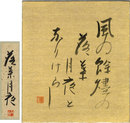 風の餘情の
落葉
月夜と
なりけらし
落葉月夜